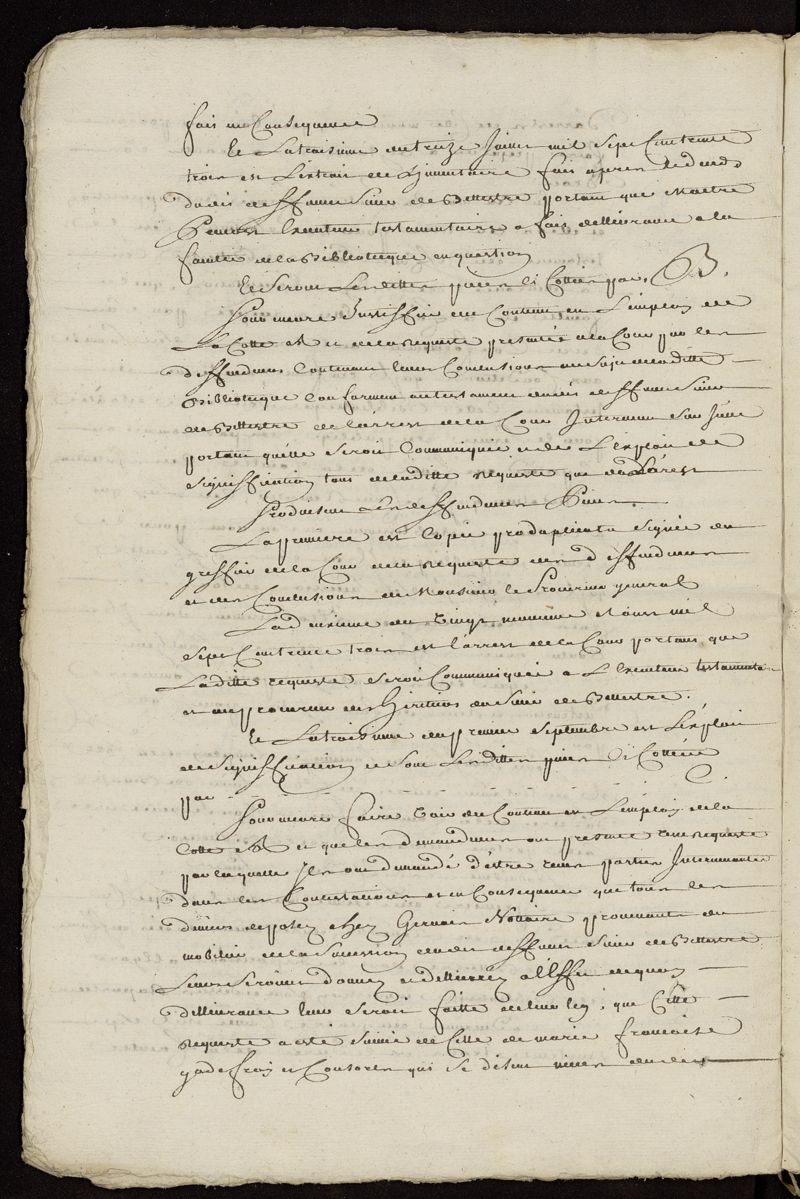 fais en Consequence
Et La troisieme du treize Janvier mil sept Cent trente
trois est L'extrait de L'inventaire fais apres le deceds
dudit deffunt Sieur de Bellestre portant que Maitre
Executeur testamentaire a fais delivrance a la
faculté de la Bibliotheque en question
Et Seront Lesdittes pieces icy Cottées par, B,
Pour encore Justiffier du Contenu en L'employ de
La Cotte A et de la Requeste presentée a la Cour par les
deffendeurs Contenant leurs Conclusions au Sujet de laditte
Bibliotheque Conformement au testament dudit deffunt Sieur
de Bellestre de L'arrest de la Cour Intervenu Sur Icelle
portant qu'elle Seroit Communiquée et de L'exploit de
Signiffication tant de laditte Requeste que dud arrest
Produisent Lesd deffendeurs Pieces
La premiere est Copie signée du
greffier de la Cour de la Requeste des deffendeurs
et des Conclusions de Monsieur le Procureur general
La deuxieme du Vingt neuvieme Aoust mil
Sept Cent trente trois est L'arrest de la Cour portant que
Laditte requeste Seroit Communiquée a L'Executeur testamentaire
et au procureur des Heritiers du Sieur de Bellestre.
Et La troisieme du premier Septembre est L'exploit
de Signiffication et Sont Lesdittes pieces icy Cottées
par C.
Pour encore faire Voir du Contenu en L'employ de la
Cotte A et que les demandeurs ont presenté une Requeste
par laquelle Ils ont demandé d'estre reçus parties Intervenantes
dans les Contestations et en Consequence que tous les
deniers deposez chez Gervais Nottaire provenants du
mobilier de la Succession dudit deffunt Sieur de Bellestre
Leurs Seroient donnez et delivrez a L'effet de quoy
dellivrance leur Seroit faitte de leur legs, que Cette
Requeste a esté Suivie de Celle de marie francoise
gadefroy et Consorts qui Se disent nieces dudit